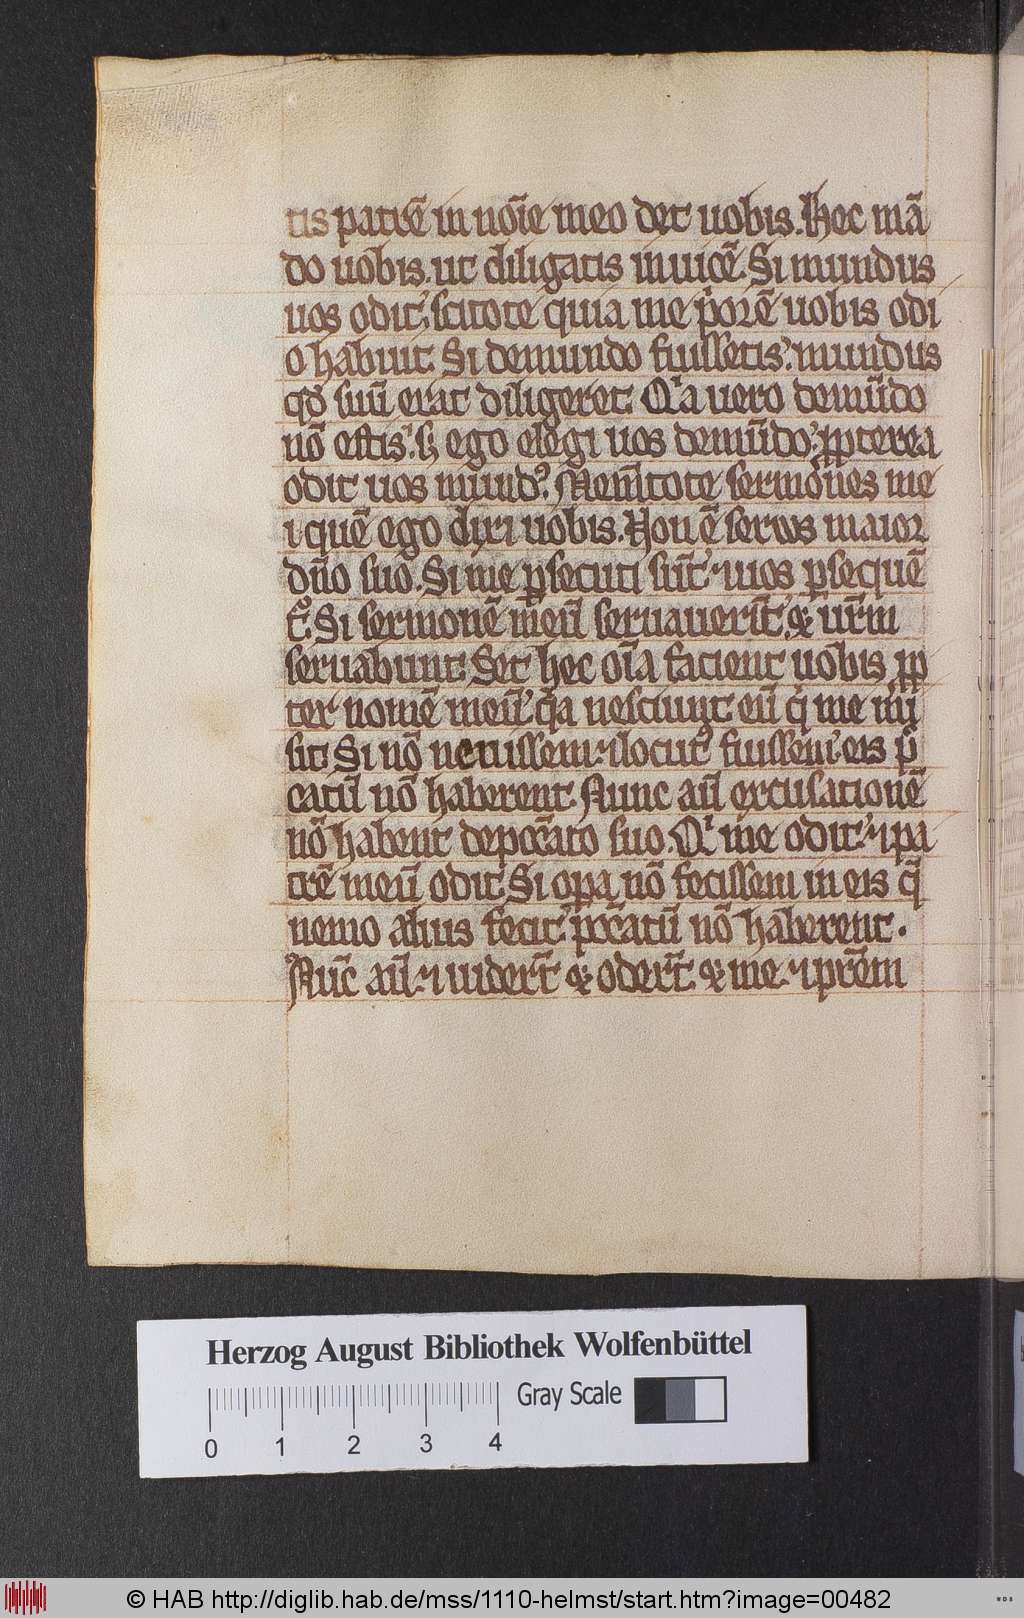 tis patrē in noīe meo det uobis. Hec mā
do uobis. ut diligatis inuicē. Si mundus
uos odit, scitote quia me p̄orē uobis odi
o habuit. Si demundo fuissetis. mundus
qd̓ suū erat diligeret. Qͥa uero demūdo
nō estis. sꝫ ego elegi uos demūdo. ꝓpterea
odit uos mundꝰ. Mem̄tote sermones me
i quē ego dixi uobis. Non ē seruus maior
dn̄o suo. Si me ꝑsecuti sūt. ⁊ uos ꝑsequē
tꝰ. Si sermonē meū seruauerīt. & ur̄m
seruabunt. Set hec oīa facient uobis ꝓp
ter nomē meū. qͥa nesciunt eū qͥ me mi
sit. Si nō uenissem. ⁊ locutꝰ fuissem eis p̄
catū nō haberent. Nunc aū excusationē
nō habent depc̄cato suo. Qͥ me odit. ⁊ pa
trē meū odit. Si oꝑa nō fecissem in eis q̄
nemo alius fecit. pc̄catū nō haberent.
Nūc aū. ⁊ uiderūt & oderūt. & me. ⁊ pr̄em
Herzog August Bibliothek Wolfenbüttel
Gray Scale
0 1 2 3 4
© HAB http://diglib.hab.de/mss/1110-helmst/start.htm?image=00482